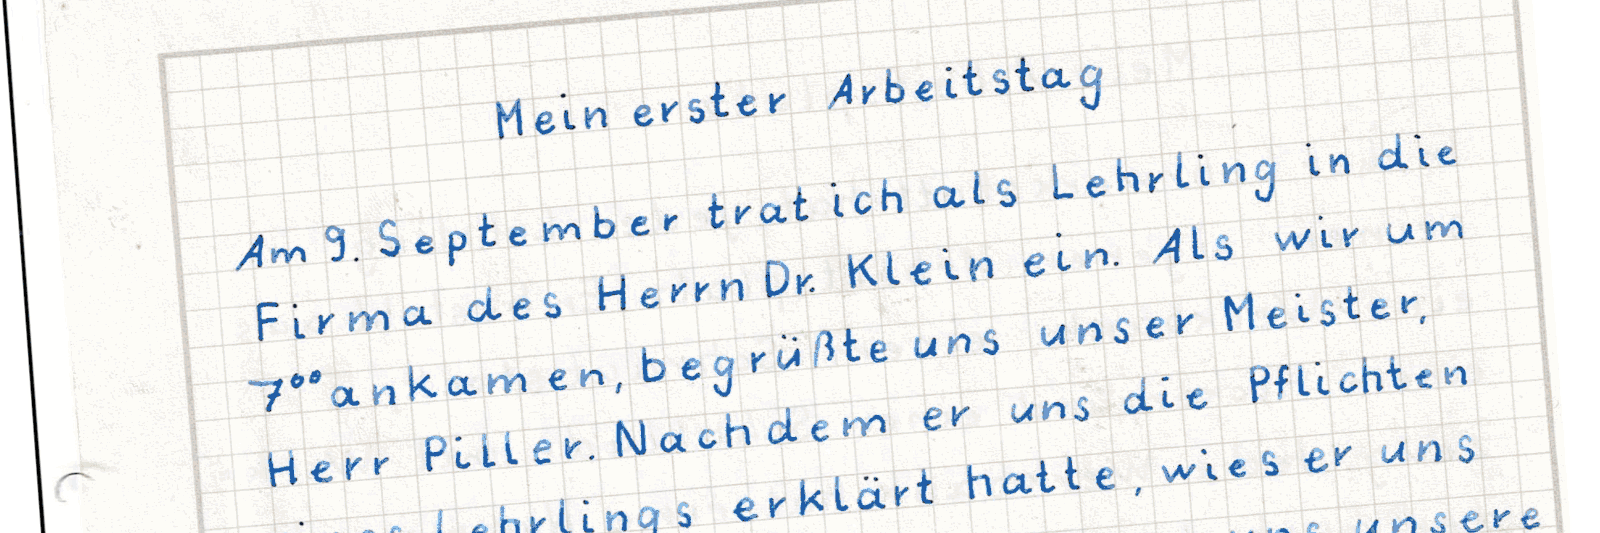 Mein erster Arbeitstag
Am 9. September trat ich als Lehrling in die
Firma des Herrn Dr. Klein ein. Als wir um
7⁰⁰ ankamen, begrüßte uns unser Meister,
Herr Piller. Nachdem er uns die Pflichten
Lehrlings erklärt hatte, wies er uns
uns unsere